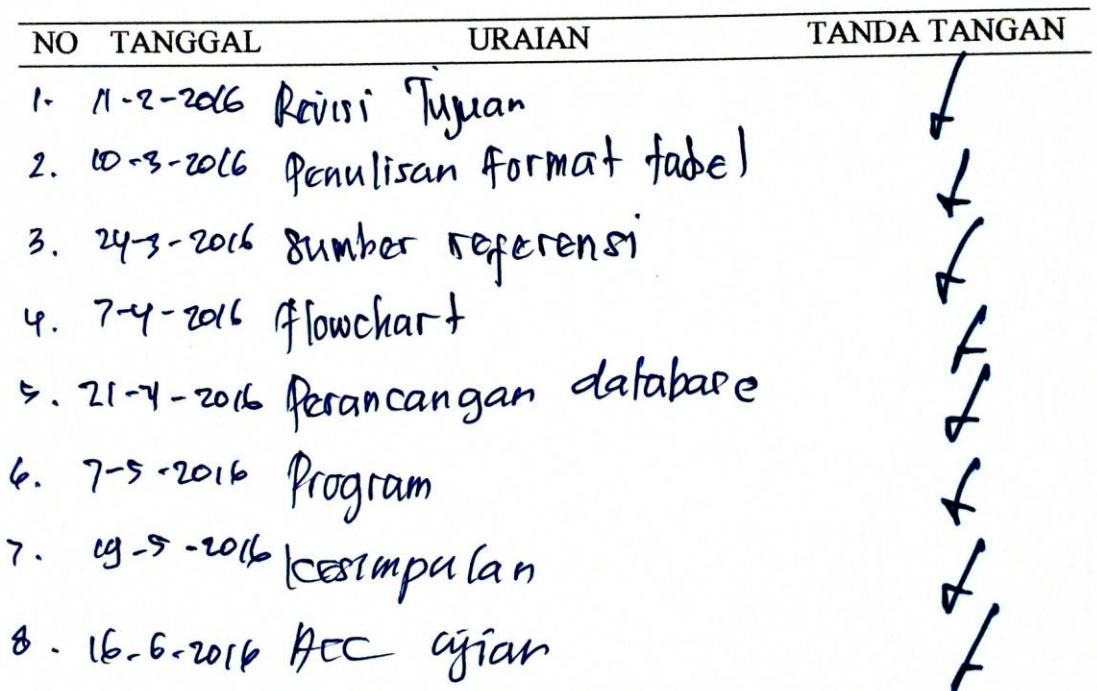 NO TANGGAL URAIAN TANDA TANGAN
1. 11-2-2016 Revisi Tujuan
2. 10-3-2016 Penulisan format tabel
3. 24-3-2016 Sumber referensi
4. 7-4-2016 flowchart
5. 21-4-2016 Perancangan database
6. 7-5-2016 Program
7. 19-5-2016 kesimpulan
8. 16-6-2016 ACC ujian